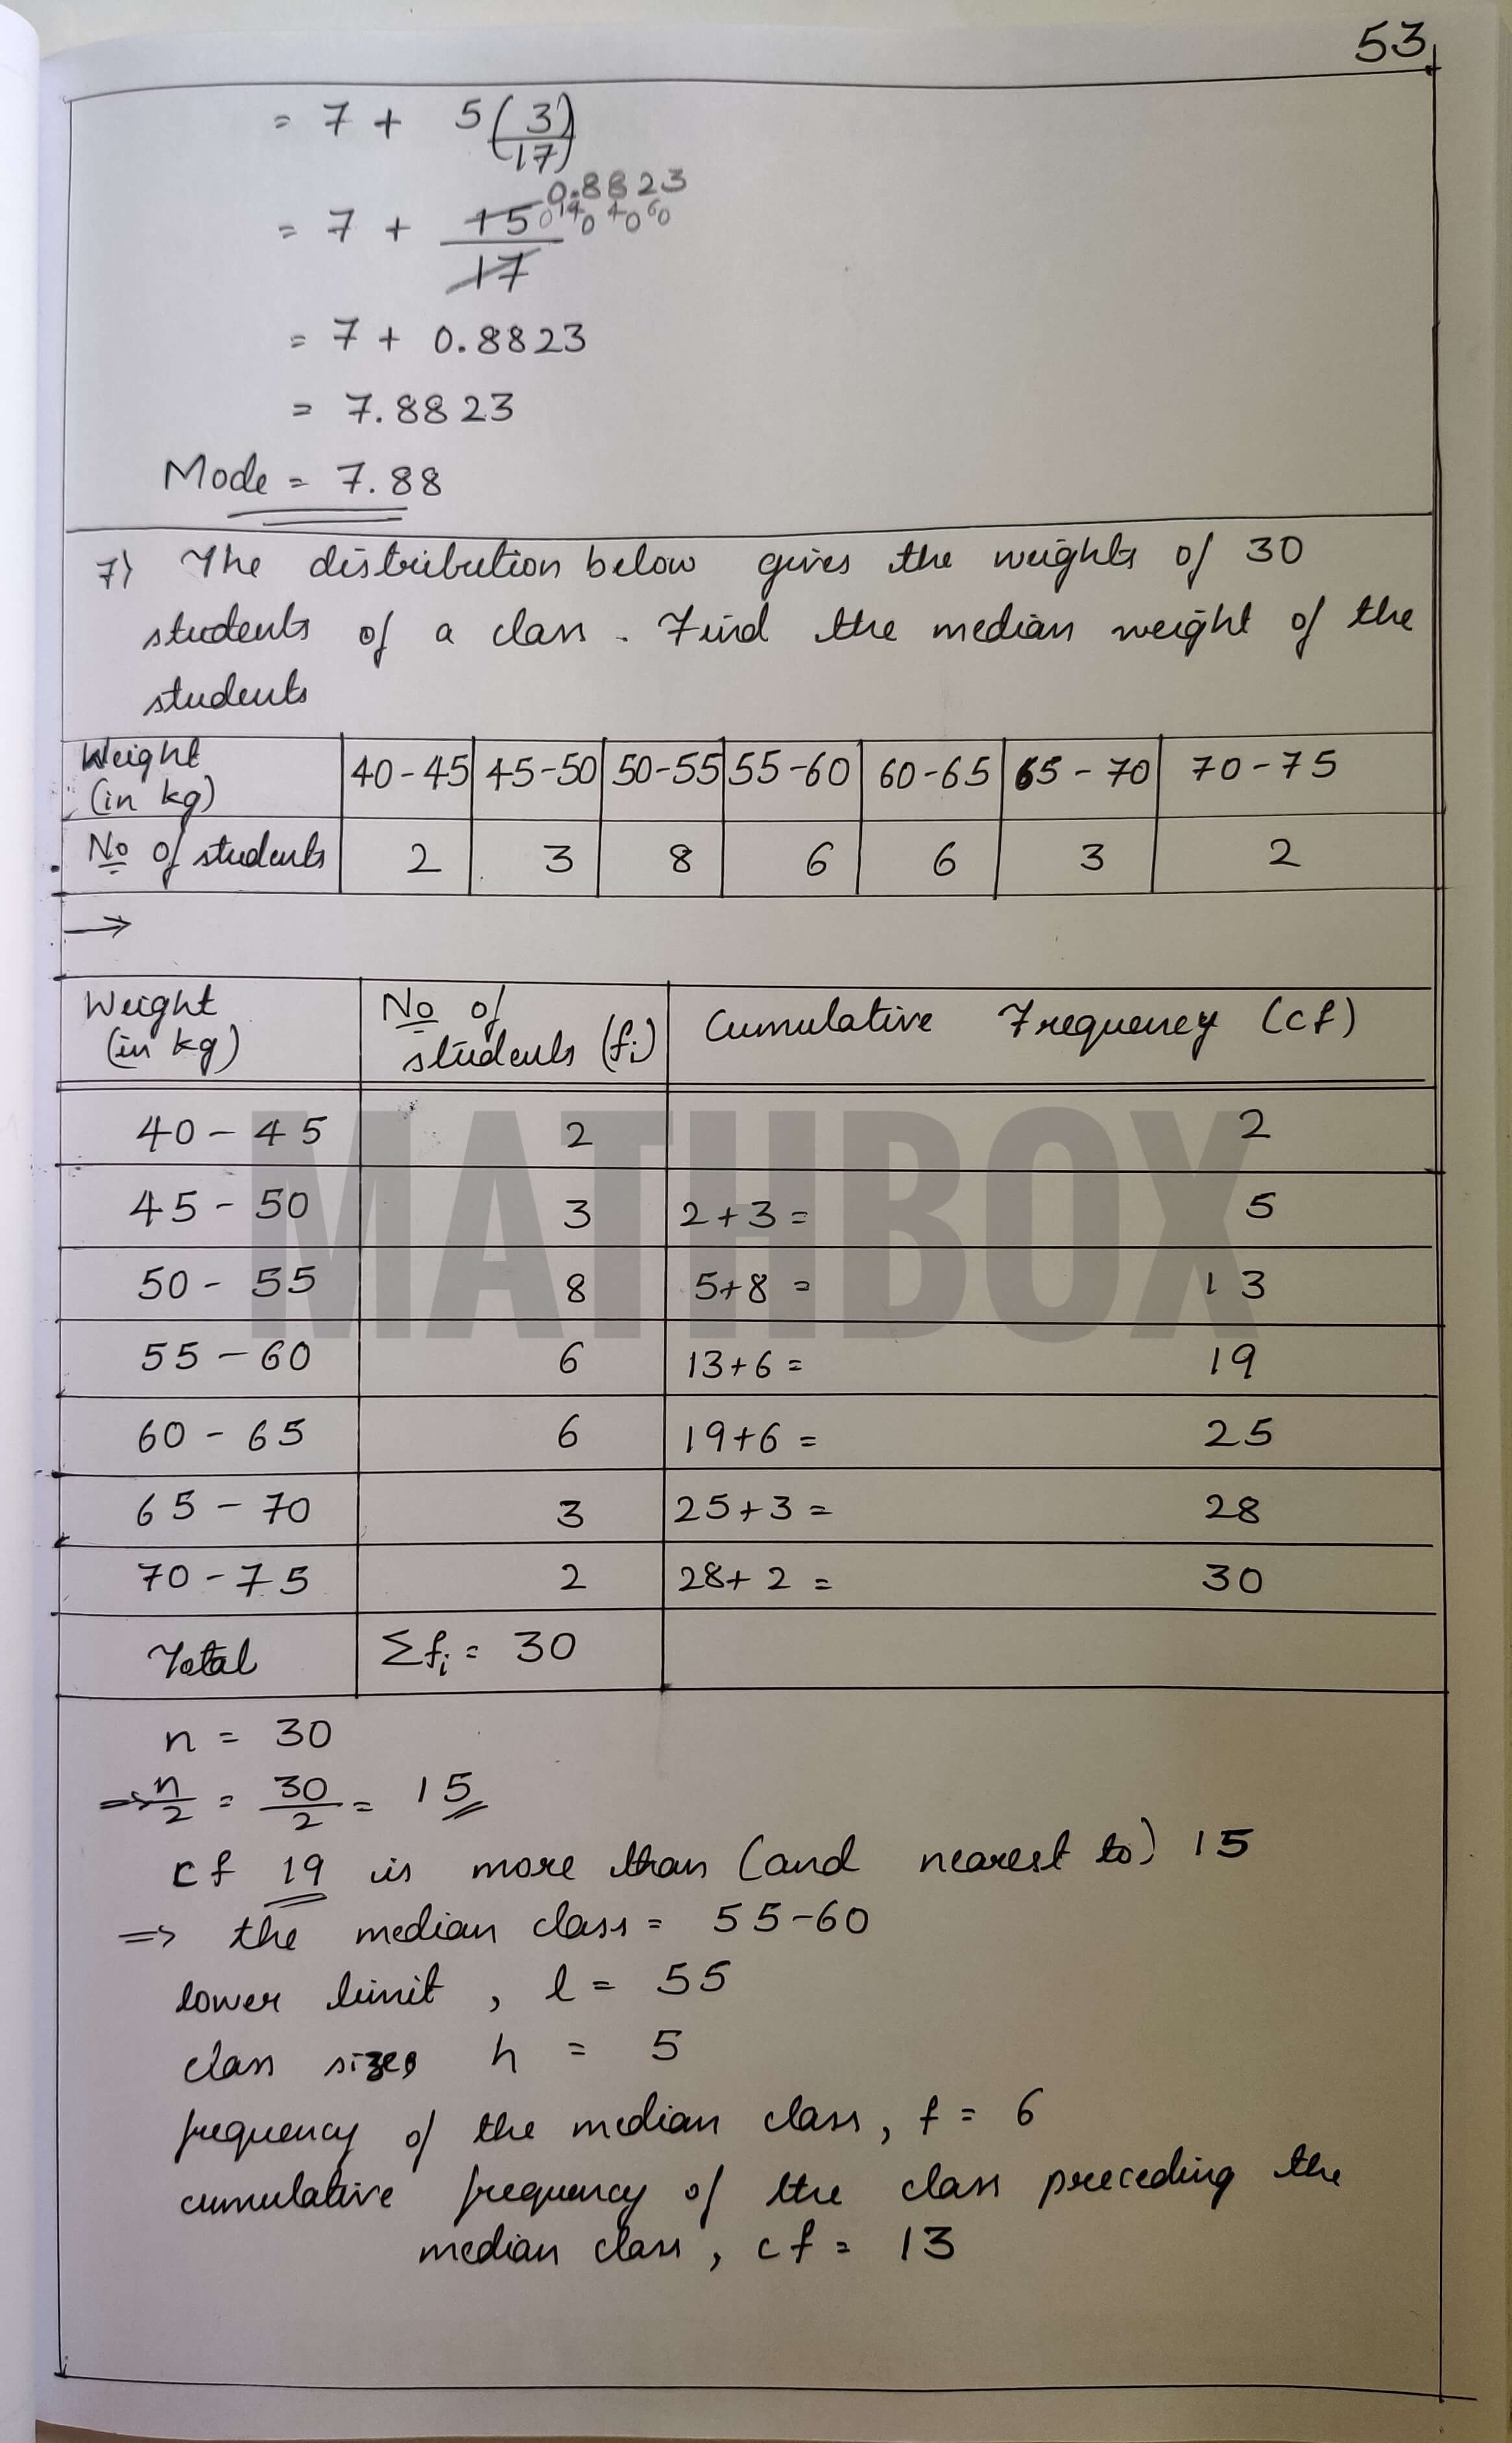 53
= 7 + 5(3/17)
0.8823
= 7 + 15 0 14 0 4 0 6 0 / 17
= 7 + 0.8823
= 7.8823
Mode = 7.88
7) The distribution below gives the weights of 30
students of a class. Find the median weight of the
students
Weight (in kg) 40-45 45-50 50-55 55-60 60-65 65-70 70-75
No of students 2 3 8 6 6 3 2
→
Weight (in kg) No of students (fi) Cumulative Frequency (cf)
40-45 2 2
45-50 3 2+3= 5
50-55 8 5+8= 13
55-60 6 13+6= 19
60-65 6 19+6= 25
65-70 3 25+3= 28
70-75 2 28+2= 30
Total Σfi = 30
MATHBOX
n = 30
⇒ n/2 = 30/2 = 15
cf 19 is more than (and nearest to) 15
⇒ the median class = 55-60
lower limit, l = 55
class size, h = 5
frequency of the median class, f = 6
cumulative frequency of the class preceding the
median class, cf = 13